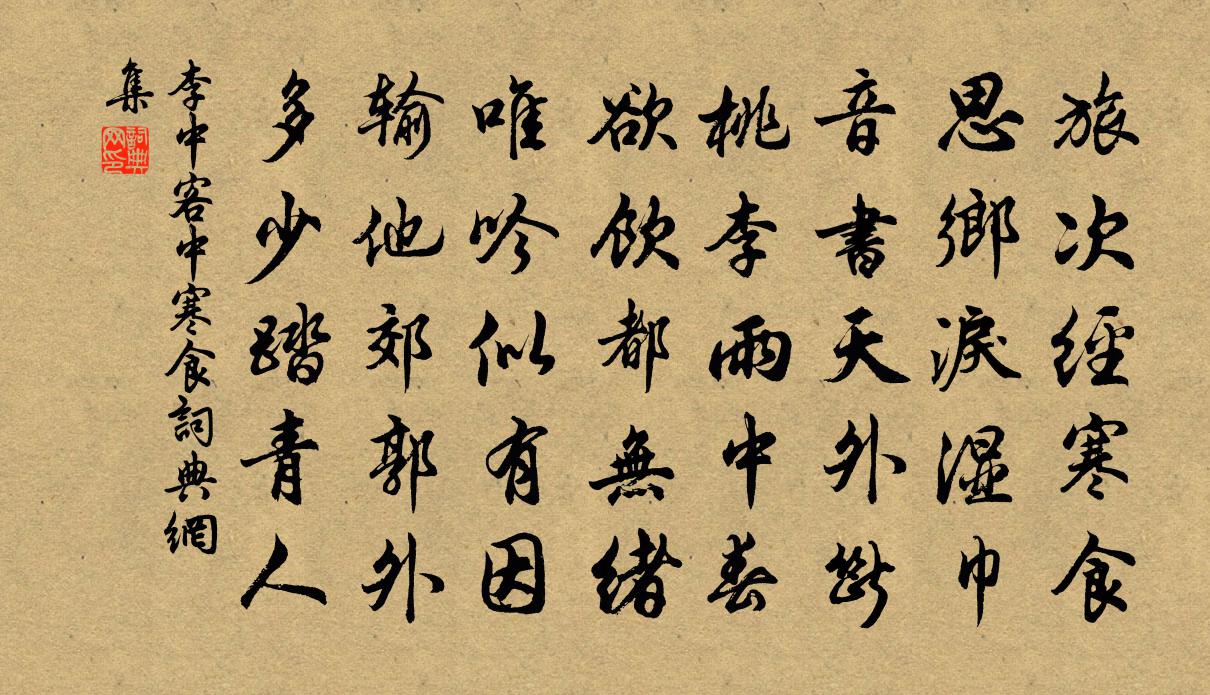 旅次經寒食
思鄉淚濕巾
音書天外斷
桃李雨中春
欲飲都無緒
唯吟似有因
輸他郊郭外
多少踏青人
李中客中寒食詞典網
集
詞典
网印